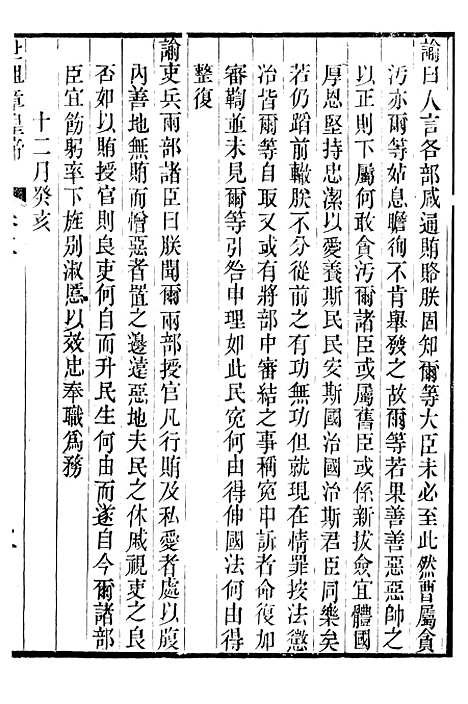 諭曰人言各部咸通賄賂朕固知爾等大臣未必至此然曹屬貪
污亦爾等姑息瞻徇不肯舉發之故爾等若果善善惡惡帥之
以正則下屬何敢貪污爾諸臣或屬舊臣或係新拔僉宜體國
厚恩堅持忠潔以愛養斯民民安斯國治國治斯君臣同樂矣
若仍蹈前轍朕不分從前之有功無功就現在情罪按法懲
治皆爾等自取又或有將部中審結之事稱冤申訴者命復加
審鞫並未見爾等引咎申理如此民冤何由得伸國法何由得
整復
諭吏兵兩部諸臣曰朕聞爾兩部授官凡行賄及私愛者處以腹
內善地無賄而憎惡者置之邊遠惡地夫民之休戚視吏之良
否如以賄授官則良吏何自而升民生何由而遂自今爾諸部
臣宜飭躬率下旌別淑慝以效忠奉職為務
十二月癸亥
世祖章皇帝